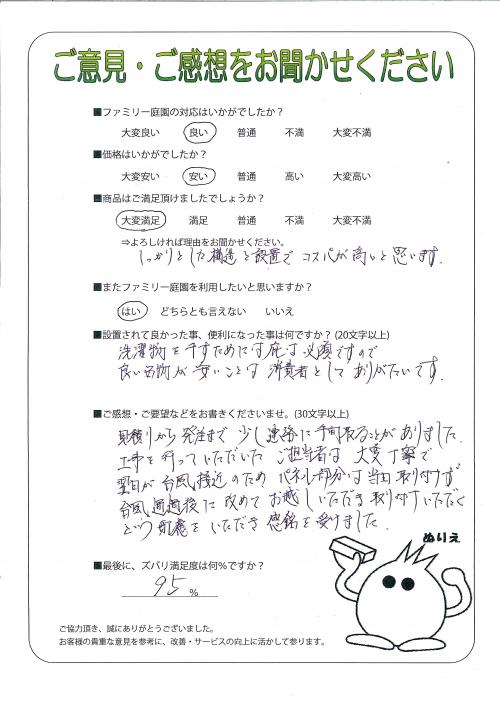 ご意見・ご感想をお聞かせください
■ファミリー庭園の対応はいかがでしたか？
大変良い　良い　普通　不満　大変不満
■価格はいかがでしたか？
大変安い　安い　普通　高い　大変高い
■商品はご満足頂けましたでしょうか？
大変満足　満足　普通　不満　大変不満
⇒よろしければ理由をお聞かせください。
しっかりとした構造と設置でコスパが高いと思います.
■またファミリー庭園を利用したいと思いますか？
はい　どちらとも言えない　いいえ
■設置されて良かった事、便利になった事は何ですか？(20文字以上)
洗濯物を干すためには庇は必須ですので
良い品物が安いことは消費者としてありがたいです.
■ご感想・ご要望などをお書きくださいませ。(30文字以上)
見積りから発注まで少し連絡に手間取ることがありました.
工事を行っていただいたご担当者は大変丁寧で
翌日が台風接近のためパネル部分は当日取り付けず
台風通過後に改めてお越しいただき取り付けいただく
という配慮をいただき感銘を受けました.
ぬりえ
■最後に、ズバリ満足度は何％ですか？
95 %
ご協力頂き、誠にありがとうございました。
お客様の貴重な意見を参考に、改善・サービスの向上に活かして参ります。